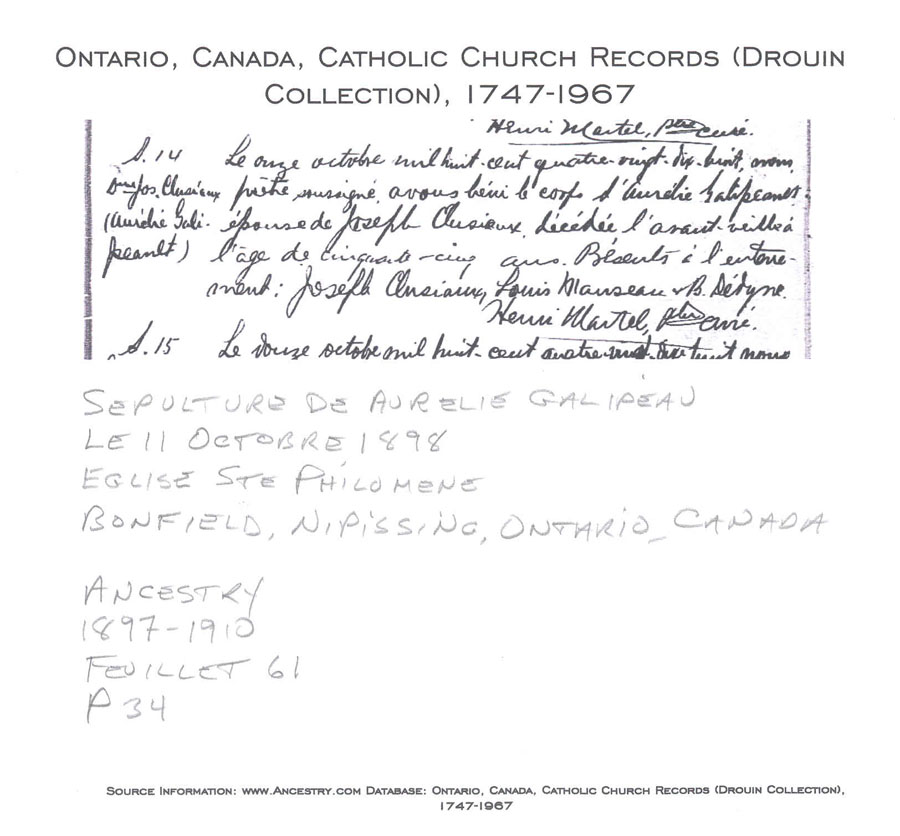 ONTARIO, CANADA, CATHOLIC CHURCH RECORDS (DROUIN
COLLECTION), 1747-1967
Henri Martel, Ptre curé.
S. 14 Le onze octobre mil huit-cent quatre-vingt-dix-huit, nous,
Jos. Clusiaux prêtre soussigné, avons béni le corps d'Aurélie Galipeault
(Aurélie Gali- épouse de Joseph Clusiaux, décédée l'avant-veille à
peault) l'âge de cinquante-cinq ans. Présents à l'enterre-
ment: Joseph Clusiaux, Louis Manseau & B.
Henri Martel, Ptre curé.
S. 15 Le douze octobre mil huit-cent quatre-vingt-dix-huit nous
SEPULTURE DE AURELIE GALIPÉAU
LE 11 OCTOBRE 1898
EGLISE STE PHILOMENE
BONFIELD, NIPISSING, ONTARIO_CANADA
ANCESTRY
1897-1910
FEUILLET 61
P 34
SOURCE INFORMATION: WWW.ANCESTRY.COM DATABASE: ONTARIO, CANADA, CATHOLIC CHURCH RECORDS (DROUIN COLLECTION),
1747-1967